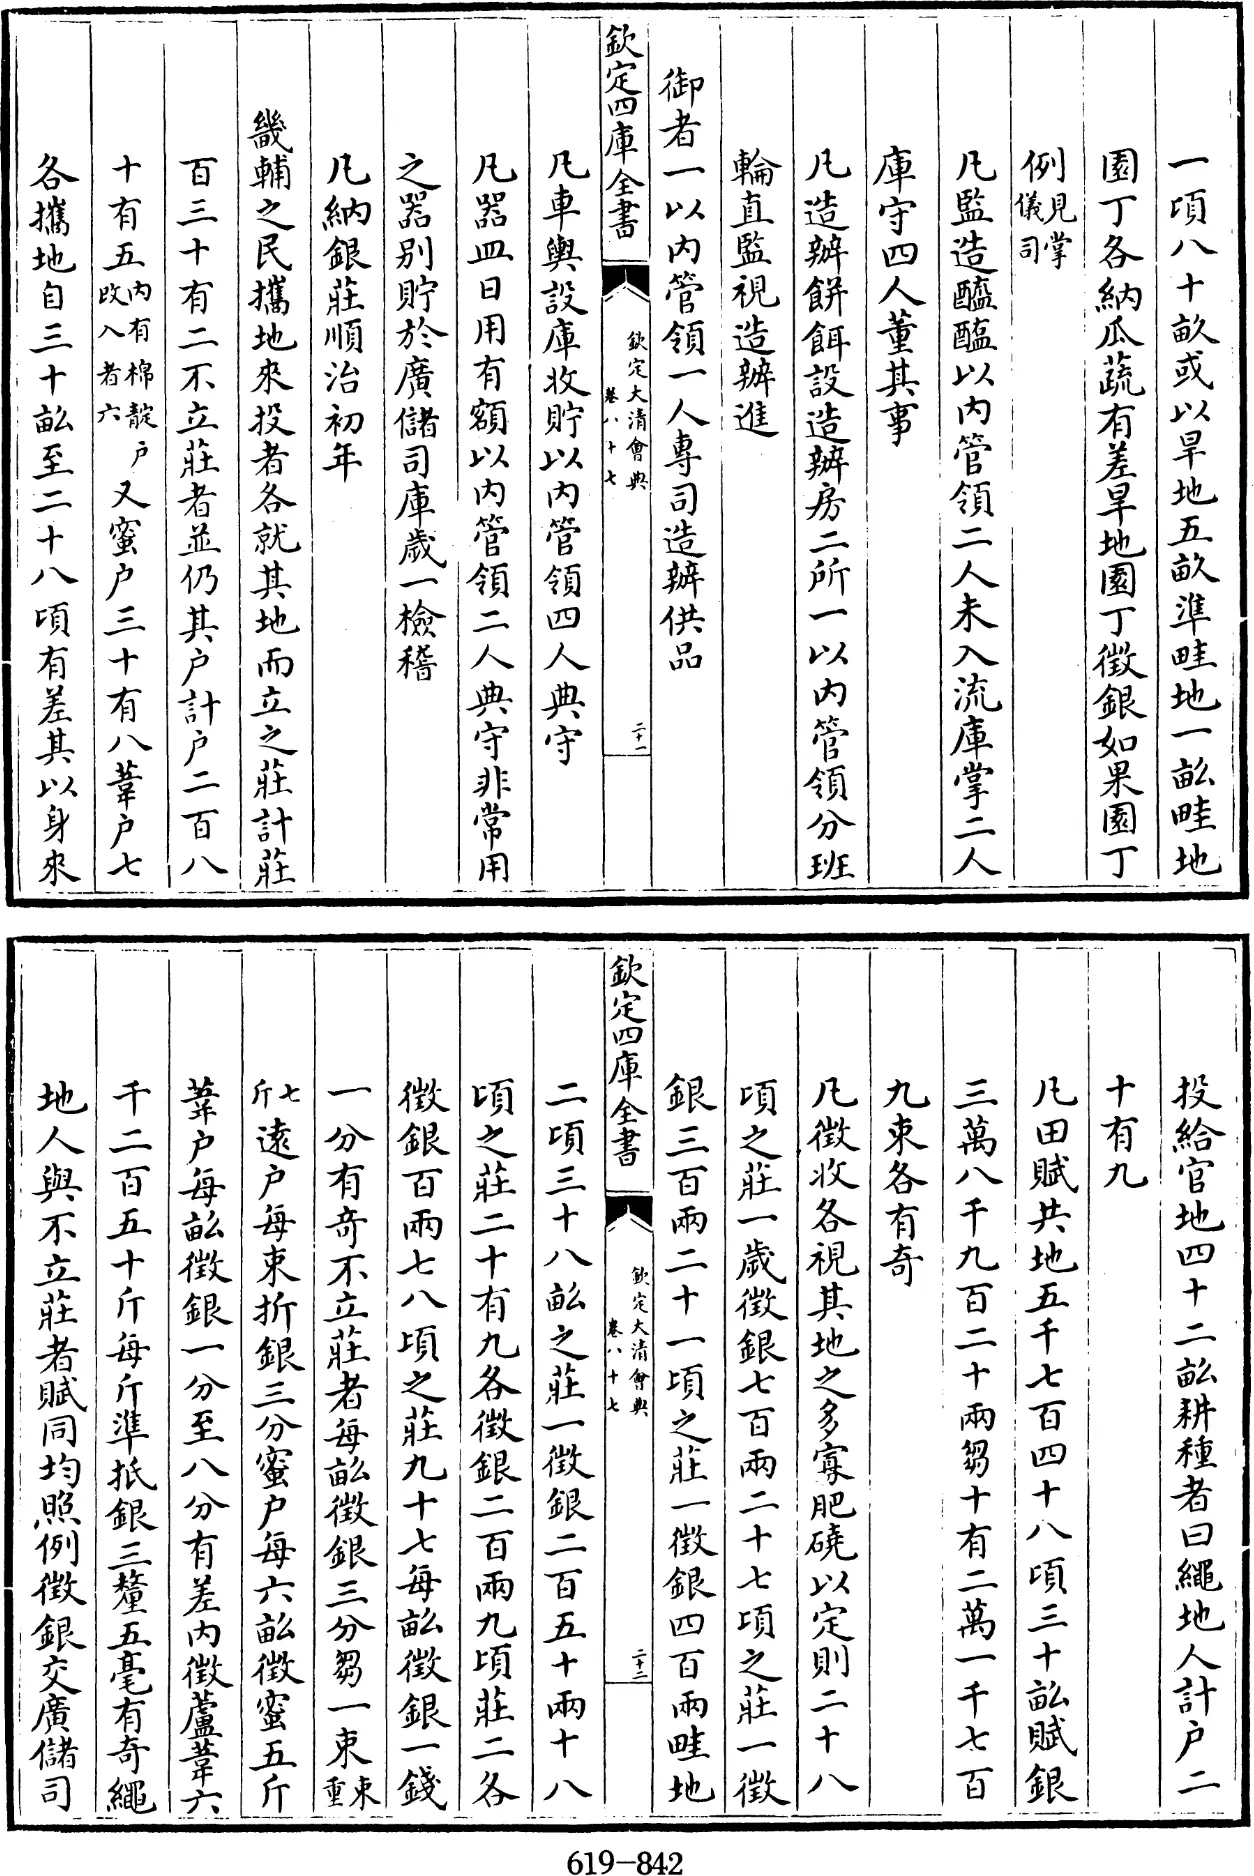 一頃八十畝或以旱地五畝準畦地一畝畦地
園丁各納瓜蔬有差旱地園丁徵銀如果園丁
例見掌儀司
凡監造醯醢以内管領二人未入流庫掌二人
庫守四人董其事
凡造辦餅餌設造辦房二所一以内管領分班
輪直監視造辦進
御者一以内管領一人專司造辦供品
欽定四庫全書
欽定大清會典
卷八十七
二十一
凡車輿設庫收貯以内管領四人典守
凡器皿日用有額以内管領二人典守非常用
之器别貯於廣儲司庫歲一檢稽
凡納銀莊順治初年
畿輔之民攜地來投者各就其地而立之莊計莊
百三十有二不立莊者並仍其户計户二百八
十有五内有棉靛户改入者六又蜜户三十有八葦户七
各攜地自三十畝至二十八頃有差其以身來
投給官地四十二畝耕種者曰繩地人計户二
十有九
凡田賦共地五千七百四十八頃三十畝賦銀
三萬八千九百二十兩芻十有二萬一千七百
九束各有奇
凡徵收各視其地之多寡肥磽以定則二十八
頃之莊一歲徵銀七百兩二十七頃之莊一徵
銀三百兩二十一頃之莊一徵銀四百兩畦地
欽定四庫全書
欽定大清會典
卷八十七
二十二
二頃三十八畝之莊一徵銀二百五十兩十八
頃之莊二十有九各徵銀二百兩九頃莊二各
徵銀百兩七八頃之莊九十七每畝徵銀一錢
一分有奇不立莊者每畝徵銀三分芻一束束重
七斤遠户每束折銀三分蜜户每六畝徵蜜五斤
葦户每畝徵銀一分至八分有差内徵蘆葦六
千二百五十斤每斤準抵銀三釐五毫有奇繩
地人與不立莊者賦同均照例徵銀交廣儲司
619-842